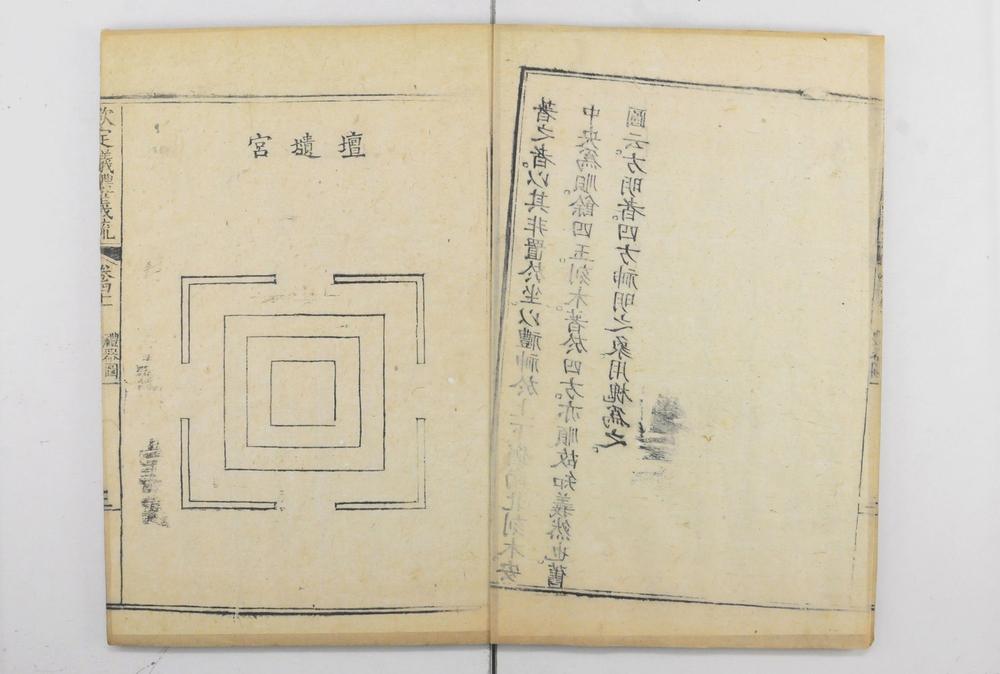 著之者。以其非置於坐。以禮神於上下北刻木安
中央為順。餘四玉刻木著於四方。亦順故知義然也。舊
圖云。方明者。四方神明之象用槐為之。
壇壝宮
欽定儀禮義疏
卷四十
禮器圖
三